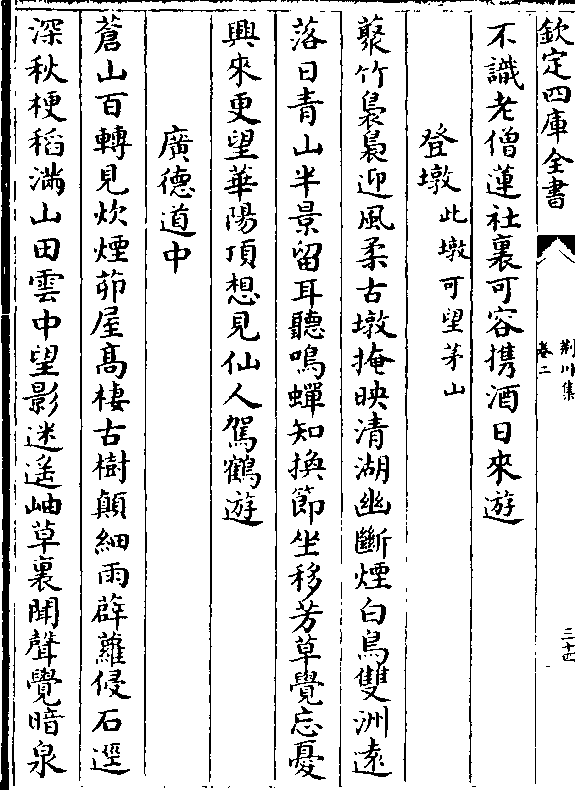 欽定四庫全書
荆川集
卷二
三十四
不識老僧蓮社裏可容攜酒日來遊
登墩此墩可望茅山
藂竹裊裊迎風柔古墩掩映清湖幽斷煙白鳥雙洲遠
落日青山半景留耳聽鳴蟬知換節坐移芳草覺忘憂
興來更望華陽頂想見仙人駕鶴遊
廣德道中
蒼山百轉見炊煙茆屋髙棲古樹顛細雨薜蘿侵石逕
深秋梗稻滿山田雲中望影迷遙岫草裏聞聲覺暗泉